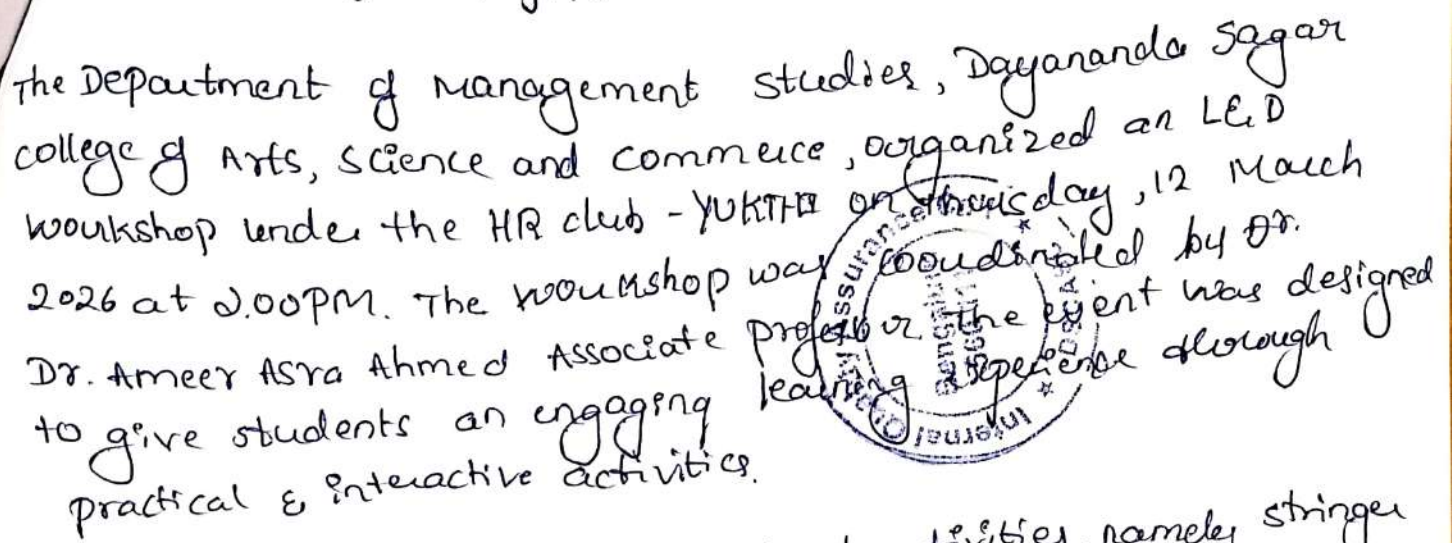 The Department of Management Studies, Dayananda Sagar
college of Arts, Science and commerce, organized an L&D
workshop under the HR club - YUKTHI on thursday, 12 March
2026 at 2.00PM. The workshop was coordinated by Dr.
Dr. Ameer Asra Ahmed Associate professor The event was designed
to give students an engaging learning experience through
practical & interactive activities.
namely stringer
Internal Quality Assurance